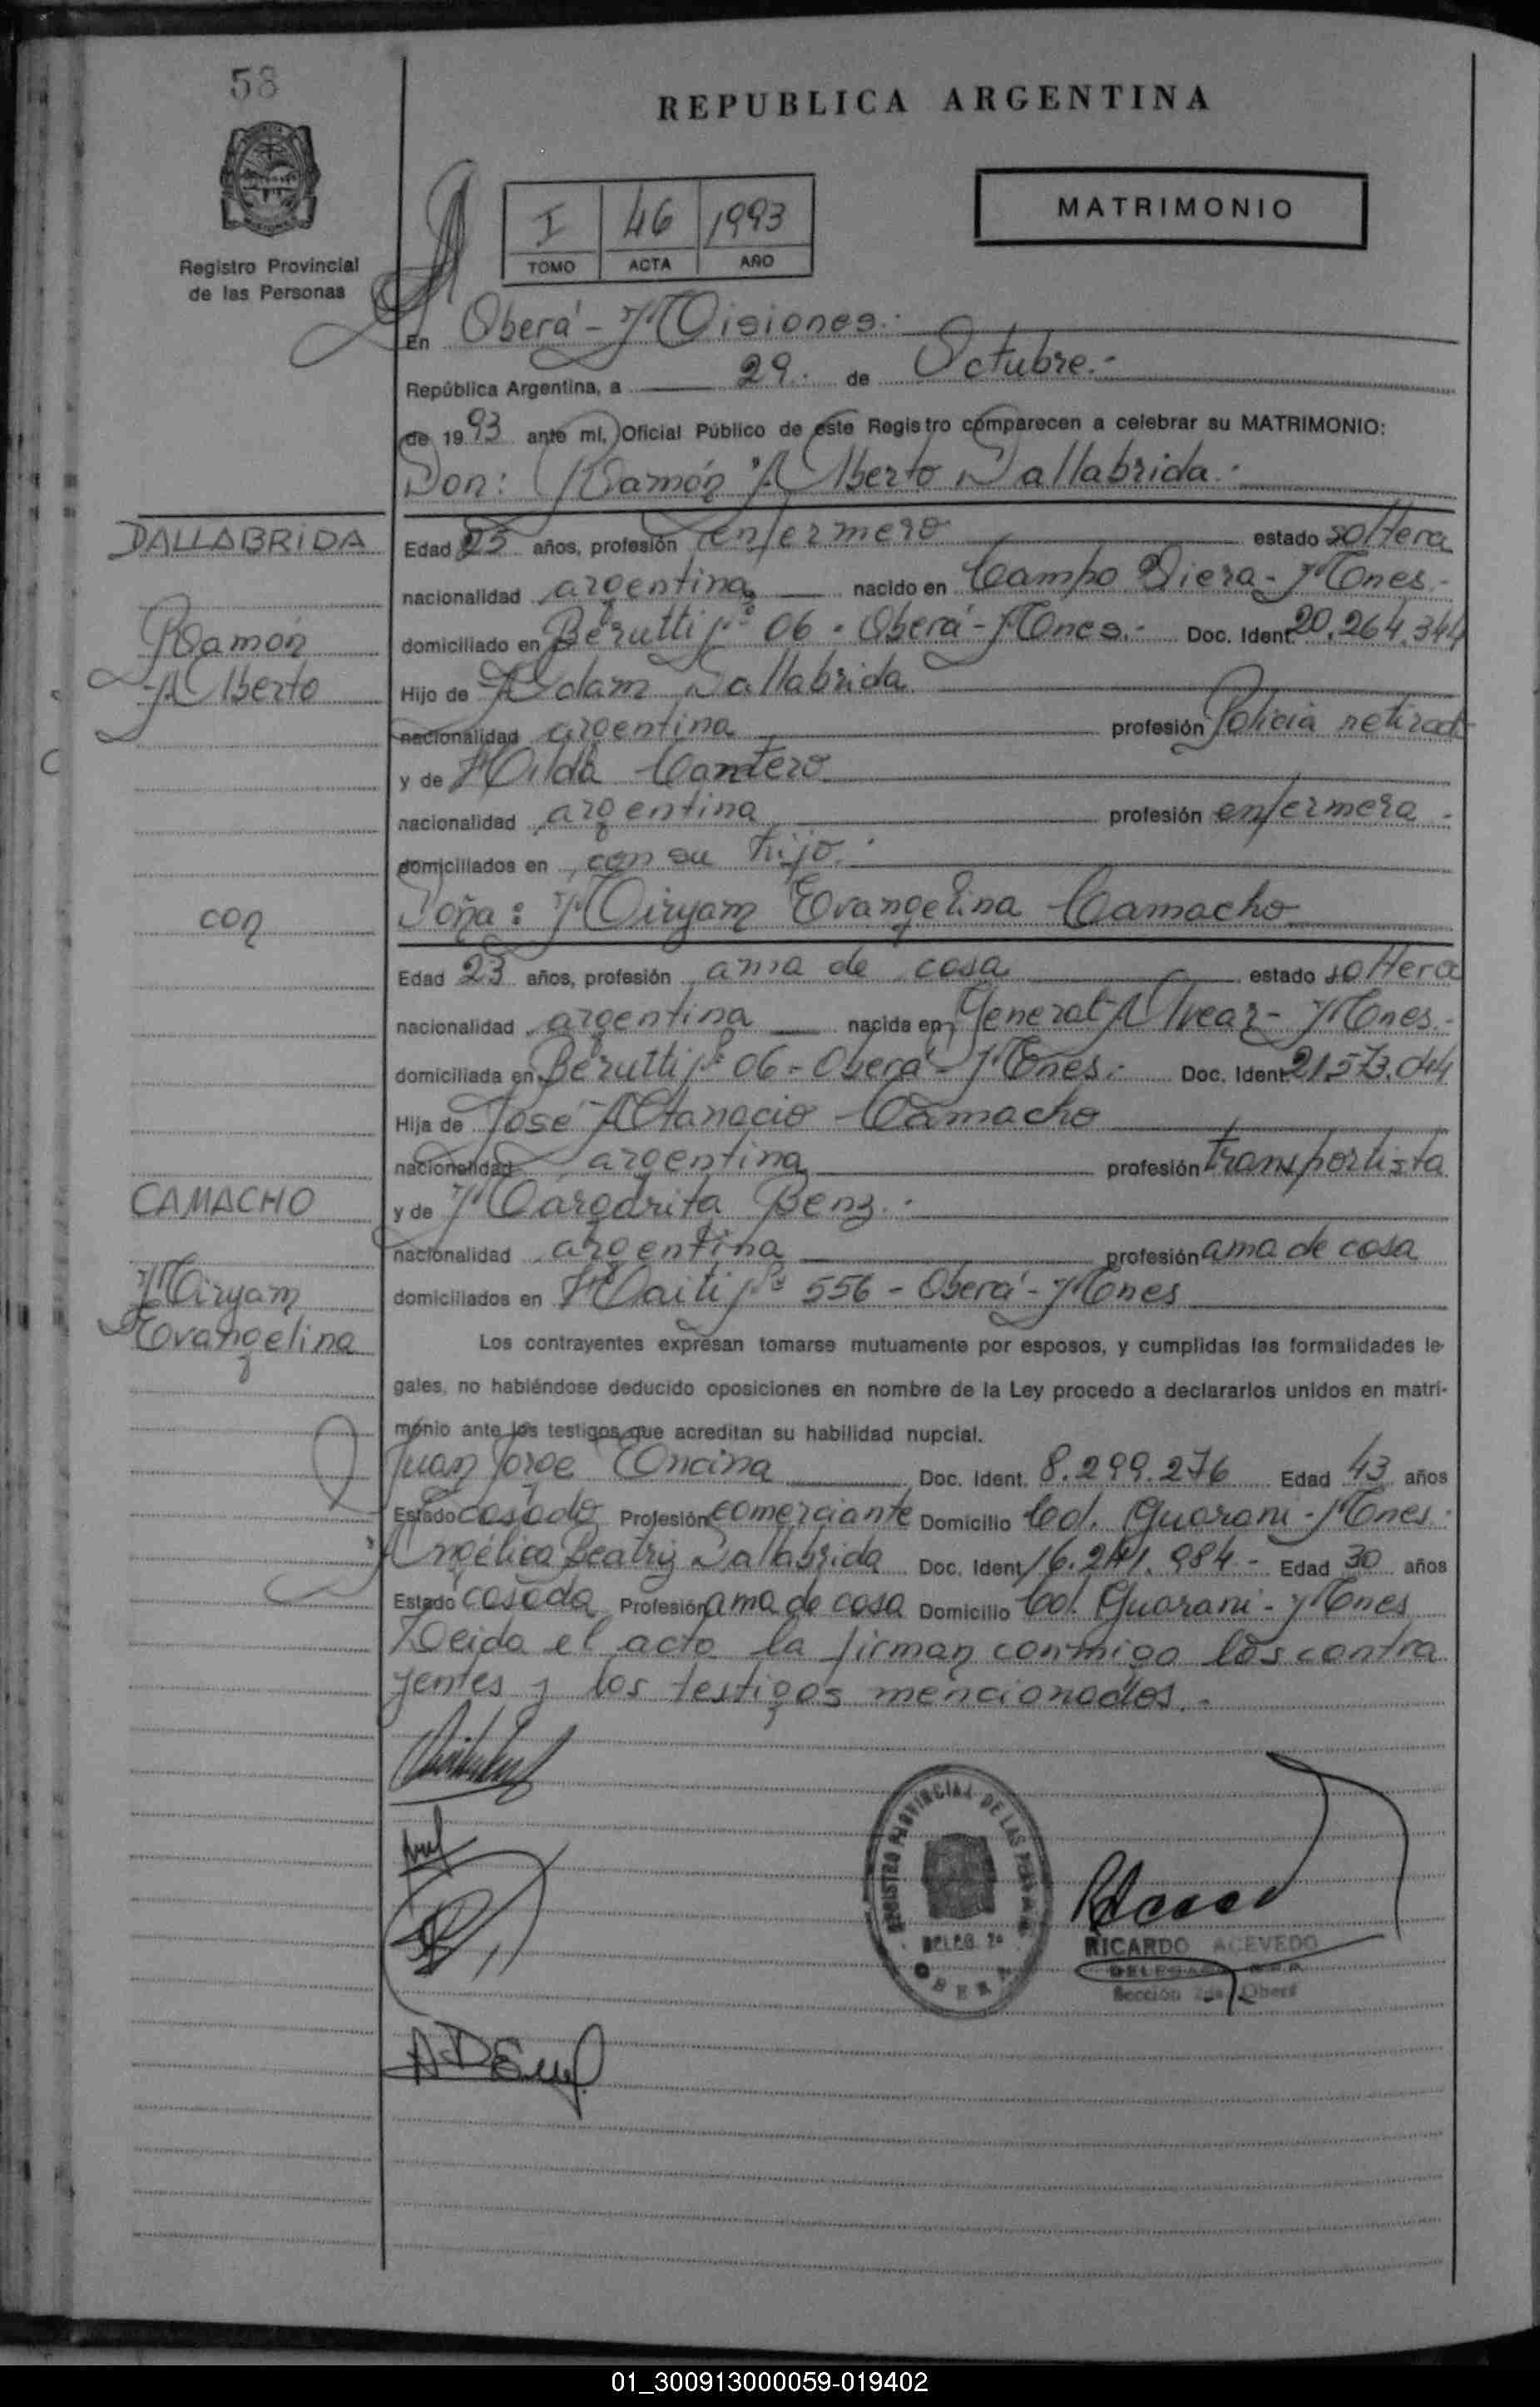 58
REPUBLICA ARGENTINA
Registro Provincial
de las Personas
I 46 1993
TOMO ACTA AÑO
MATRIMONIO
En Oberá - Misiones.-
República Argentina, a 29. de Octubre.-
de 1993 ante mí, Oficial Público de este Registro comparecen a celebrar su MATRIMONIO:
Don: Ramón Alberto Dallabrida.-
DALLABRIDA
Ramón
Alberto
Edad 25 años, profesión enfermero estado soltera
nacionalidad argentina nacido en Campo Viera - Mones.-
domiciliado en Berutti Nº 06 - Oberá - Mones.- Doc. Ident. 20.264.344
Hijo de Adam Dallabrida
nacionalidad argentina profesión Policia retirad
y de Hilda Cantero
nacionalidad argentina profesión enfermera.-
domiciliados en con su hijo.-
con
Doña: Miryam Evangelina Camacho
Edad 23 años, profesión ama de casa estado soltera
nacionalidad argentina nacida en General Alvear - Mones.-
domiciliada en Berutti Nº 06 - Oberá - Mones.- Doc. Ident. 21.573.044
Hija de José Atanacio Camacho
nacionalidad argentina profesión transportista
CAMACHO
Miryam
Evangelina
y de Margarita Benz.-
nacionalidad argentina profesión ama de casa
domiciliados en Haiti Nº 556 - Oberá - Mones
Los contrayentes expresan tomarse mutuamente por esposos, y cumplidas las formalidades le-
gales, no habiéndose deducido oposiciones en nombre de la Ley procedo a declararlos unidos en matri-
monio ante los testigos que acreditan su habilidad nupcial.
Juan Jorge Encina Doc. Ident. 8.299.276 Edad 43 años
Estado casado Profesión comerciante Domicilio Col. Guarani - Mones.-
Angélica Beatriz Dallabrida Doc. Ident. 16.241.984 - Edad 30 años
Estado casada Profesión ama de casa Domicilio Col. Guarani - Mones
Leida el acta la firman conmigo los contra
yentes y los testigos mencionados.-
REGISTRO PROVINCIAL DE LAS PERSONAS
DELEG. 2a
OBERA
RICARDO ACEVEDO
Sección 2da. Oberá
01_300913000059-019402